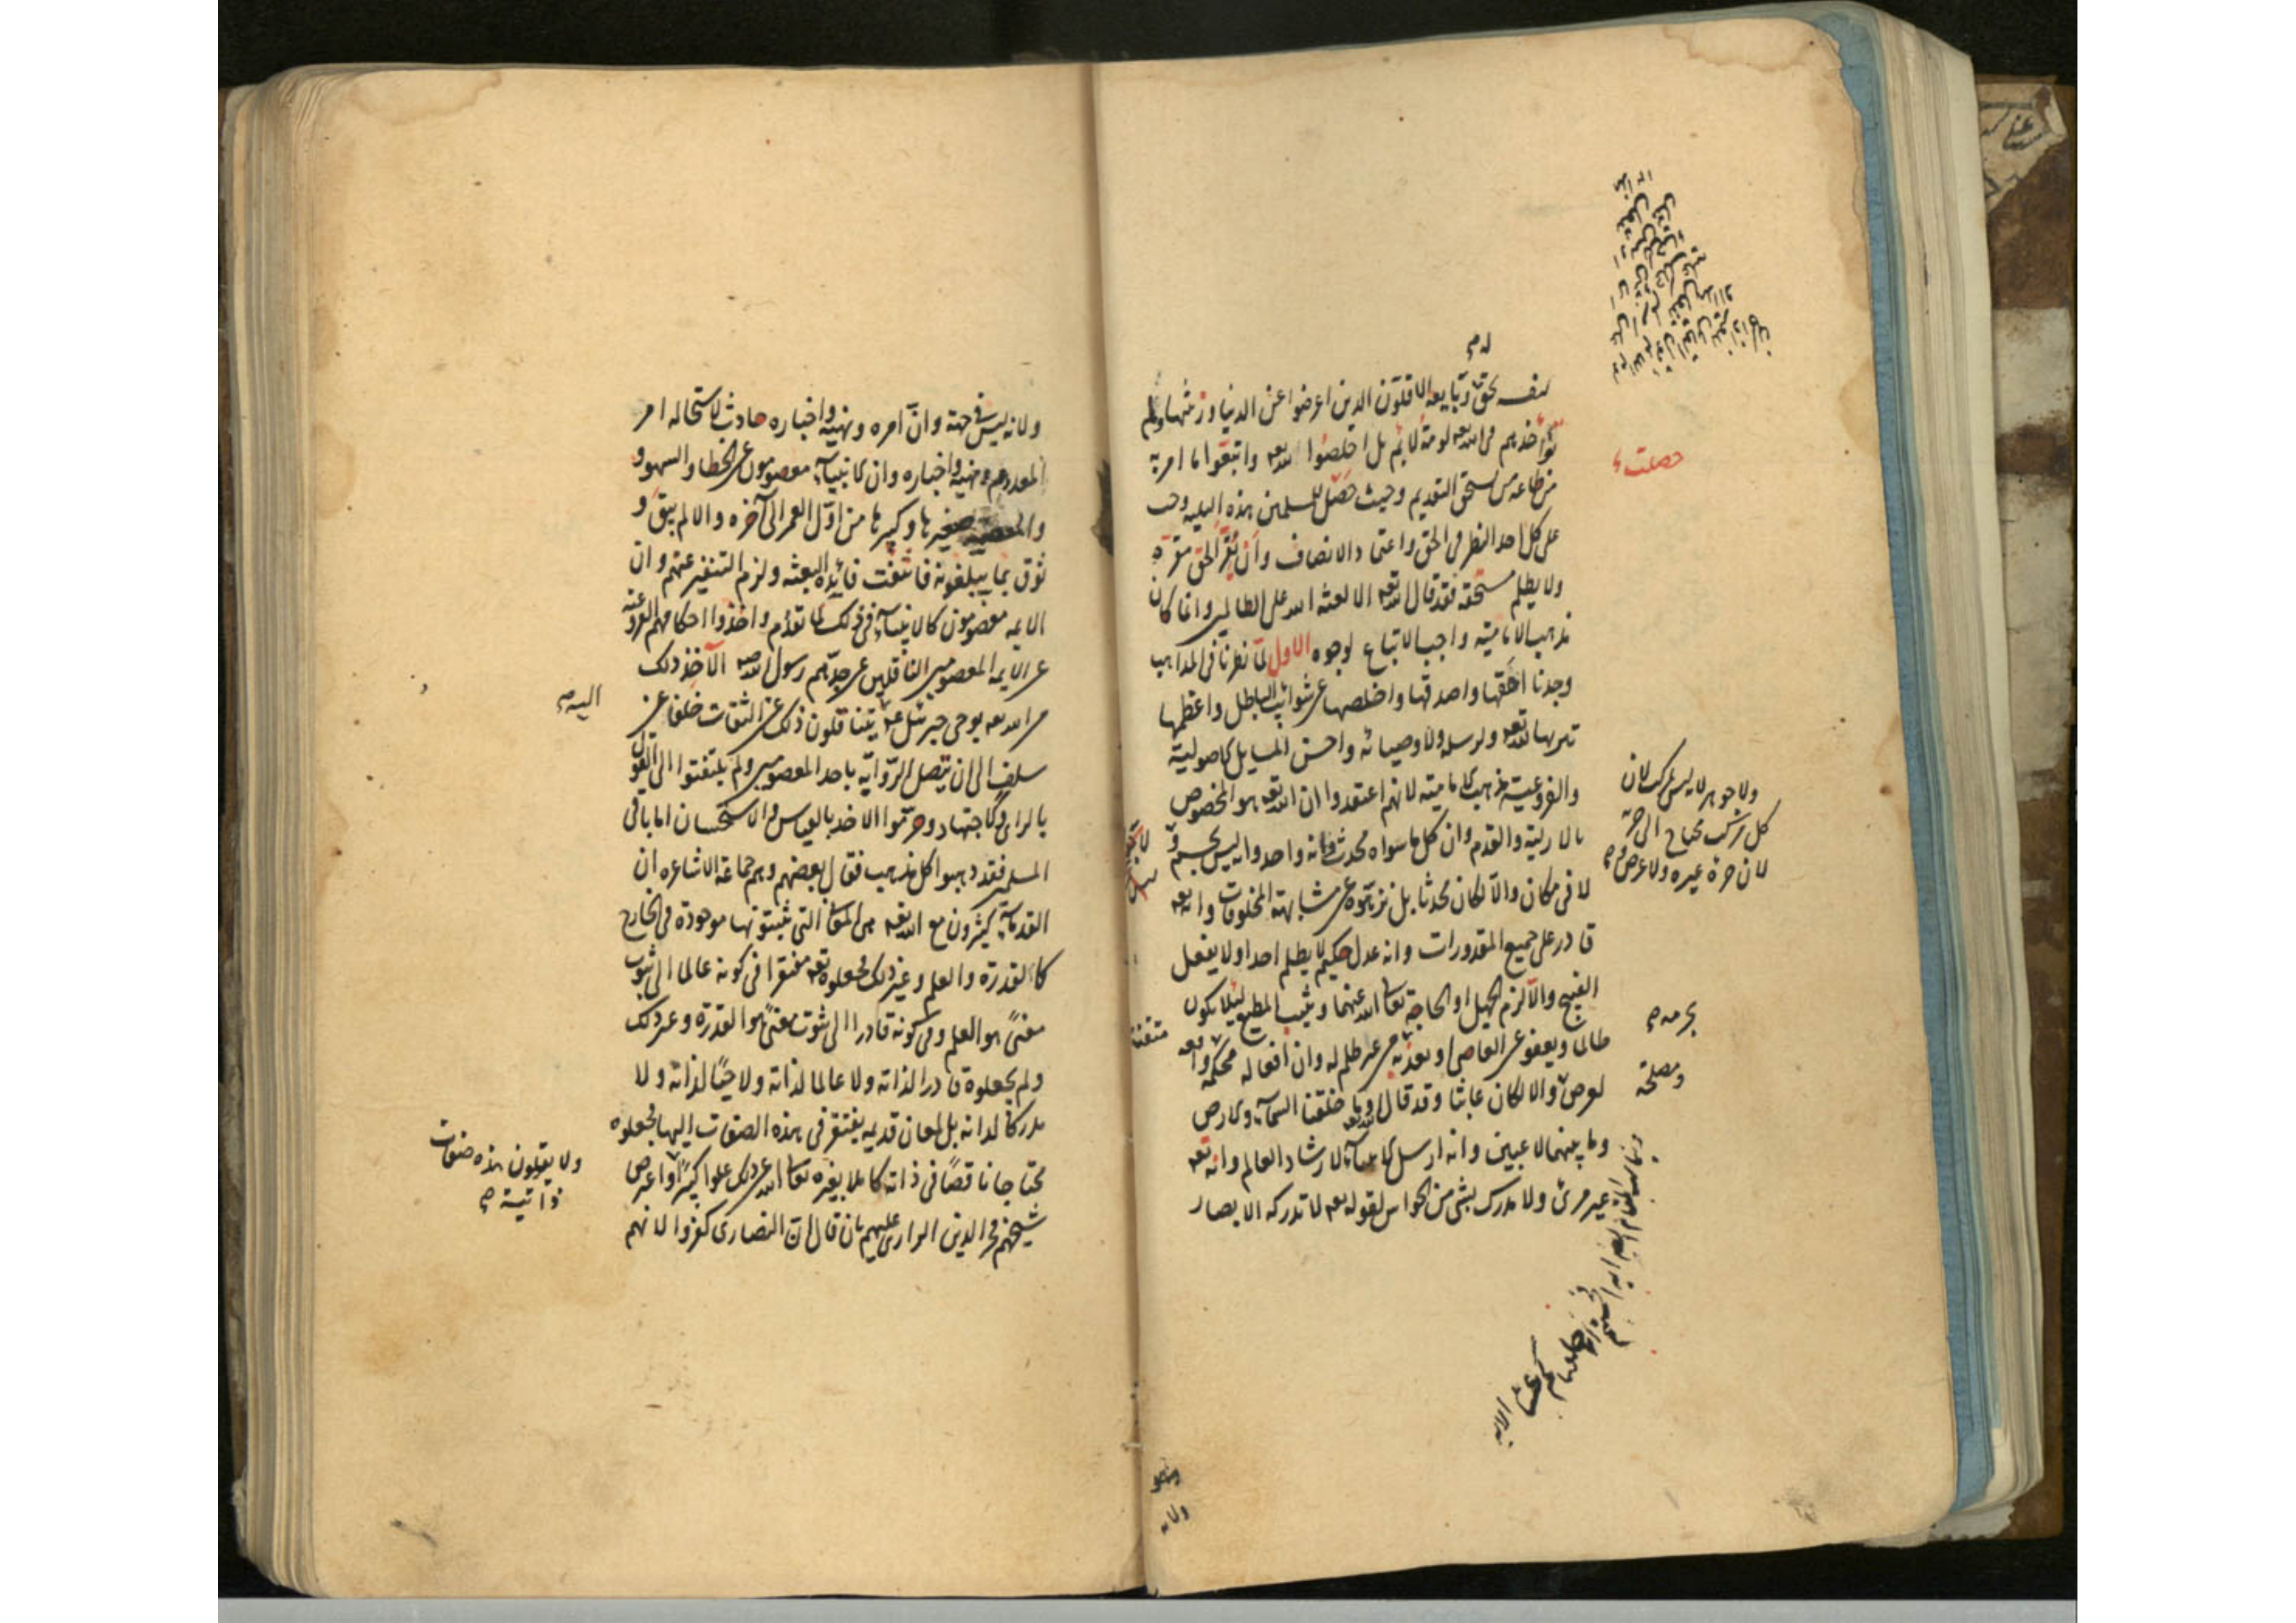 له صح
لنفسه بحق وتابعه الاقلون الذين اعرضوا عن الدنيا وزينتها ولم
تأخذهم في الله لومة لائم بل اخلصوا لله تعه واتبعوا ما امر به
من طاعة من يستحق التقديم وحيث حصل للمسلمين هذه البلية وجب
على كل احد النظر في الحق واعتماد الانصاف وان يقر الحق مقره
ولا يظلم مستحقه فقد قال الله تعه الا لعنة الله على الظالمين وانما كان
مذهب الامامية واجب الاتباع لوجوه الاول لما نظرنا في المذاهب
وجدنا احقها واصدقها واخلصها عن شوائب الباطل واعظمها
تنزيها لله تعه ولرسله ولاوصيائه واحسن المسايل الاصولية
والفروعية مذهب الامامية لانهم اعتقدوا ان الله تعه هو المخصوص
بالازلية والقدم وان كل ما سواه محدث وانه واحد وانه ليس بجسم و
لا في مكان والا لكان محدثا بل نزهوه عن مشابهة المخلوقات وانه تعه
قادر على جميع المقدورات وانه عدل حكيم لا يظلم احدا ولا يفعل
القبيح والا لزم الجهل او الحاجة تعالى الله عنهما ويثيب المطيع لئلا يكون
ظالما ويعفو عن العاصي او يعذبه من غير ظلم له وان افعاله محكمة واقعه
لغرض والا لكان عابثا وقد قال الله تعه وما خلقنا السماء والارض
وما بينهما لاعبين وانه ارسل الانبياء لارشاد العالم وانه تعه
غير مرئى ولا مدرك بشئ من الحواس لقوله تعه لا تدركه الابصار
حصلت
ولا جوهر لانه ليس بمركب لان
كل مركب يحتاج الى جزئه
لان جزءه غيره ولا عرض صح
بجرمه صح
متقنة
ومصلحة
ولانه
ولانه ليس في جهة وان امره ونهيه واخباره حادث لاستحالة امر
المعدوم ونهيه واخباره وان الانبياء معصومون عن الخطا والسهو و
والمعصية صغيرها وكبيرها من اول العمر الى آخره والا لم يبق و
ثوق بما يبلغونه فانتفت فائدة البعثة ولزم التنفير عنهم وان
الايمه معصومون كالانبياء في ذلك لما تقدم واخذوا احكامهم الفروعية
عن الايمه المعصومين الناقلين عن جدهم رسول الله صه الآخذ ذلك
من الله تعه بوحي جبرئيل عه يتناقلون ذلك عن الثقات خلفا عن
سلف الى ان يتصل الرواية باحد المعصومين ولم يلتفتوا الى القول
بالراى والاجتهاد وحرموا الاخذ بالقياس والاستحسان اما باقي
المسلمين فقد ذهبوا كل مذهب فقال بعضهم وهم جماعة الاشاعره ان
القدماء كثيرون مع الله تعه هي المعاني التي يثبتونها موجودة في الخارج
كالقدرة والعلم وغير ذلك فجعلوه تعه مفتقرا في كونه عالما الى ثبوت
معنى هو العلم وفي كونه قادرا الى ثبوت معنى هو القدرة وغير ذلك
ولم يجعلوه قادرا لذاته ولا عالما لذاته ولا حيا لذاته ولا
مدركا لذاته بل لمعان قديمه يفتقر في هذه الصفات اليها فجعلوه
محتاجا ناقصا في ذاته كاملا بغيره تعالى الله عن ذلك علوا كبيرا واعترض
شيخهم فخر الدين الرازي عليهم بان قال ان النصارى كفروا لانهم
اليه صح
ولا يقولون هذه صفات
ذاتية صح